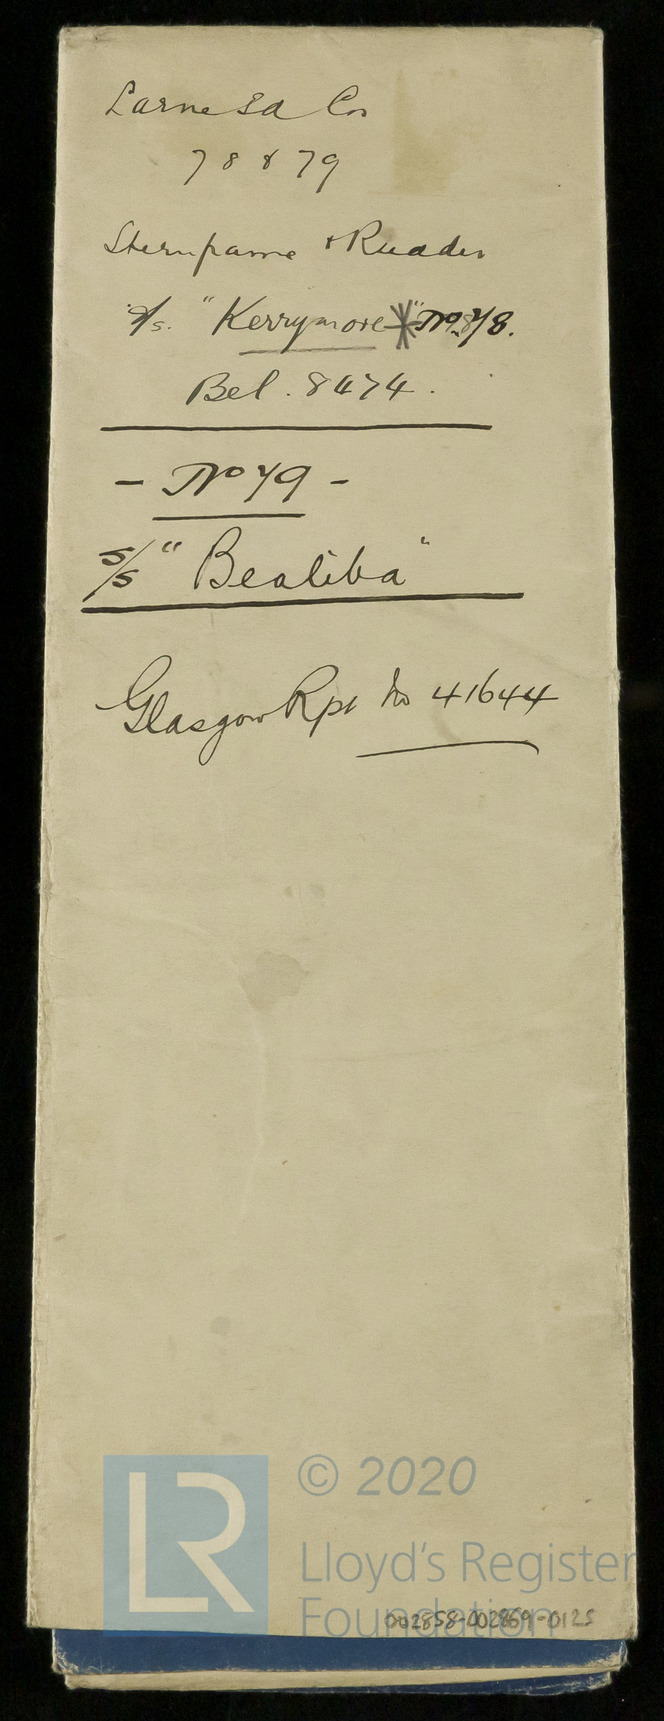 Larne Sd Co
78 & 79
Sternframe & Rudder
s/s. "Kerrymore" No. 78.
Bel. 8474.
- No 79 -
s/s "Bealiba"
Glasgow Rpt No 41644
LR
© 2020
Lloyd's Register
Foundation
002858-002869-0125